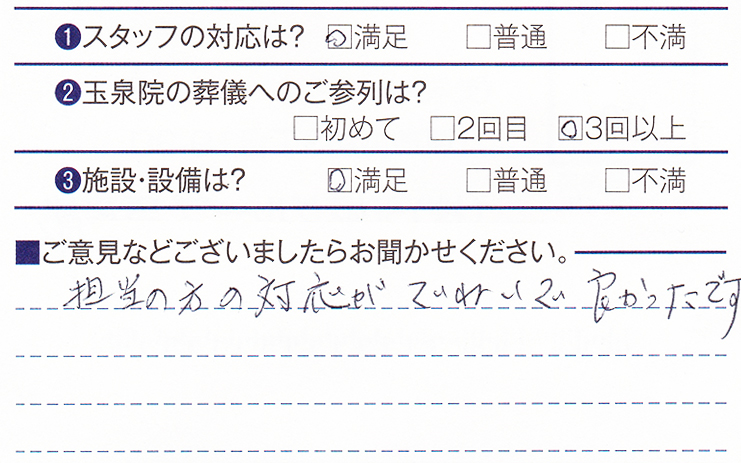 ❶スタッフの対応は? ☑満足 □普通 □不満
❷玉泉院の葬儀へのご参列は?
□初めて □2回目 ☑3回以上
❸施設・設備は? ☑満足 □普通 □不満
■ご意見などございましたらお聞かせください。
担当の方の対応がていねいで良かったです